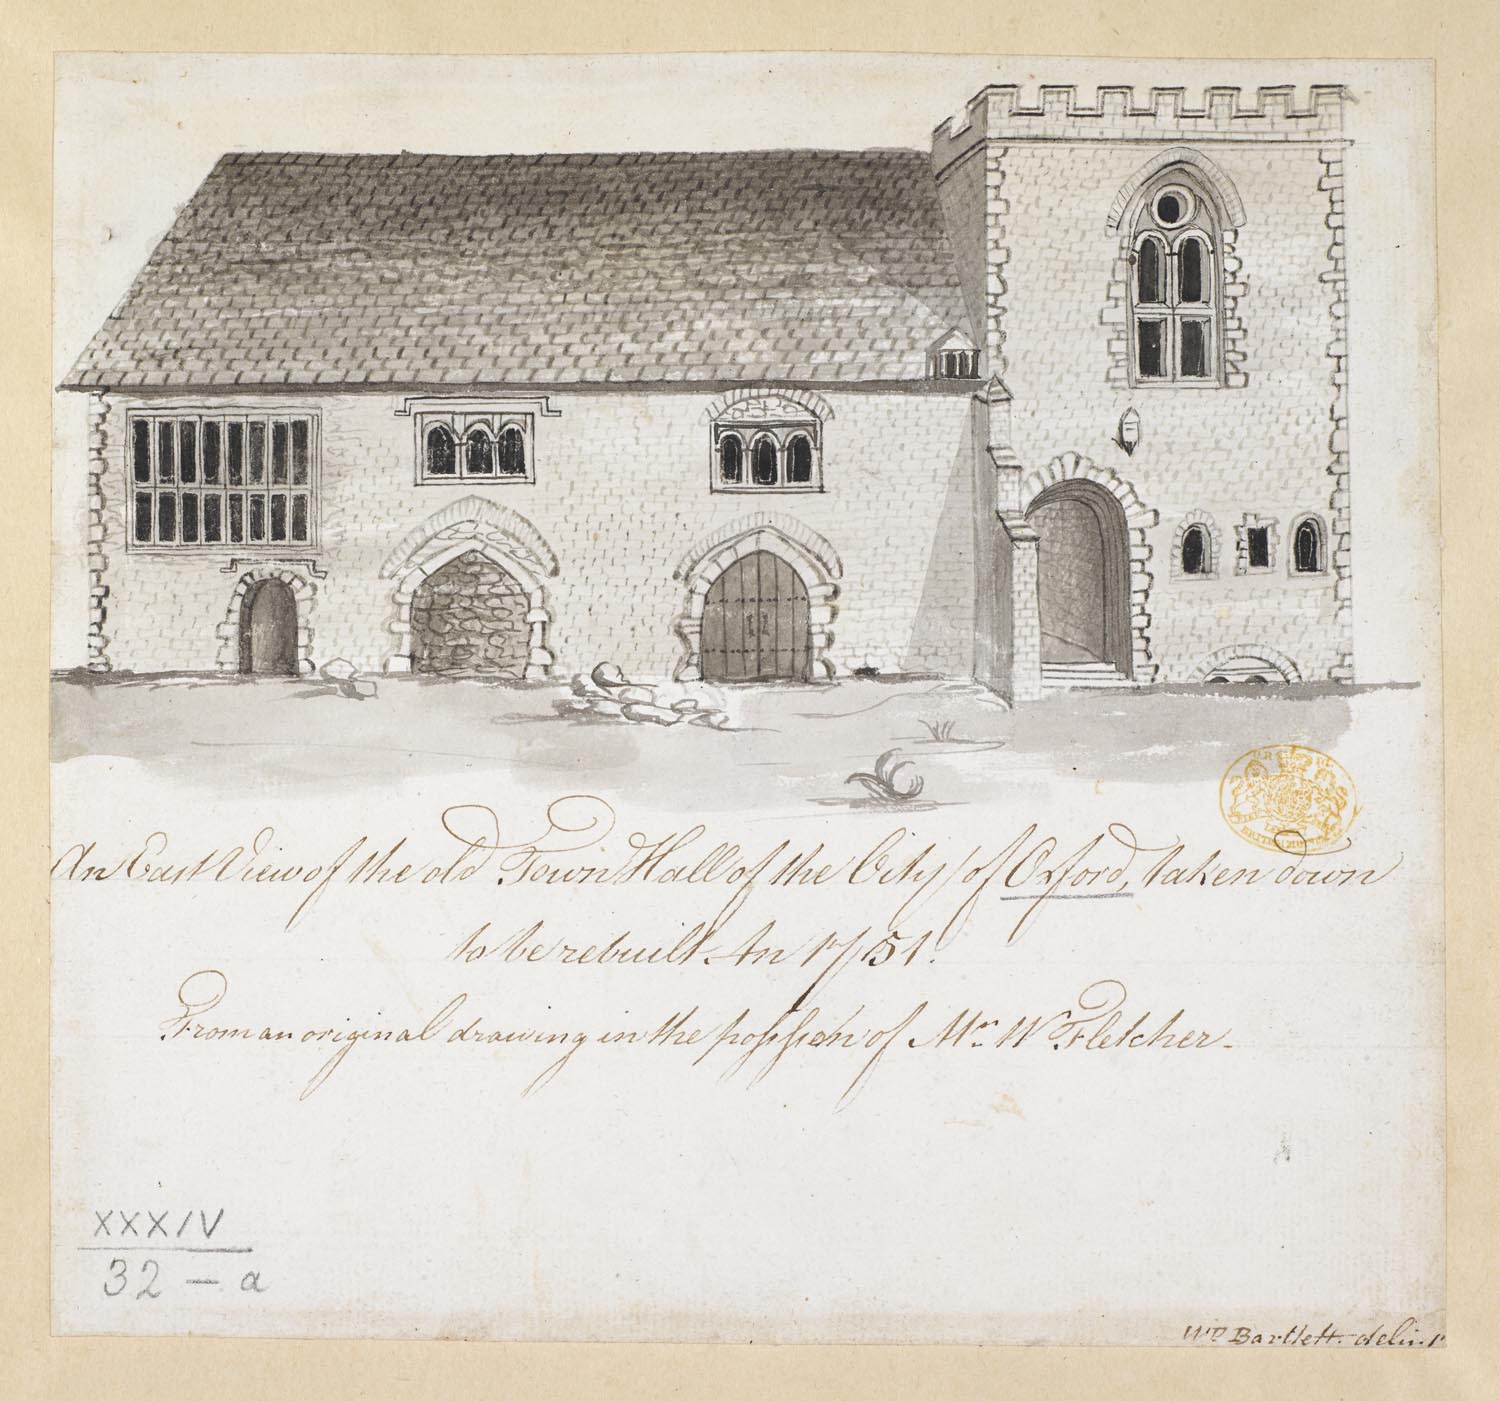 An East View of the old Town Hall of the City of Oxford, taken down
to be rebuilt. An 1751.
From an original drawing in the possesiõn of Mr. W Fletcher.
XXXIV
32 - a
Wm Bartlett. delint